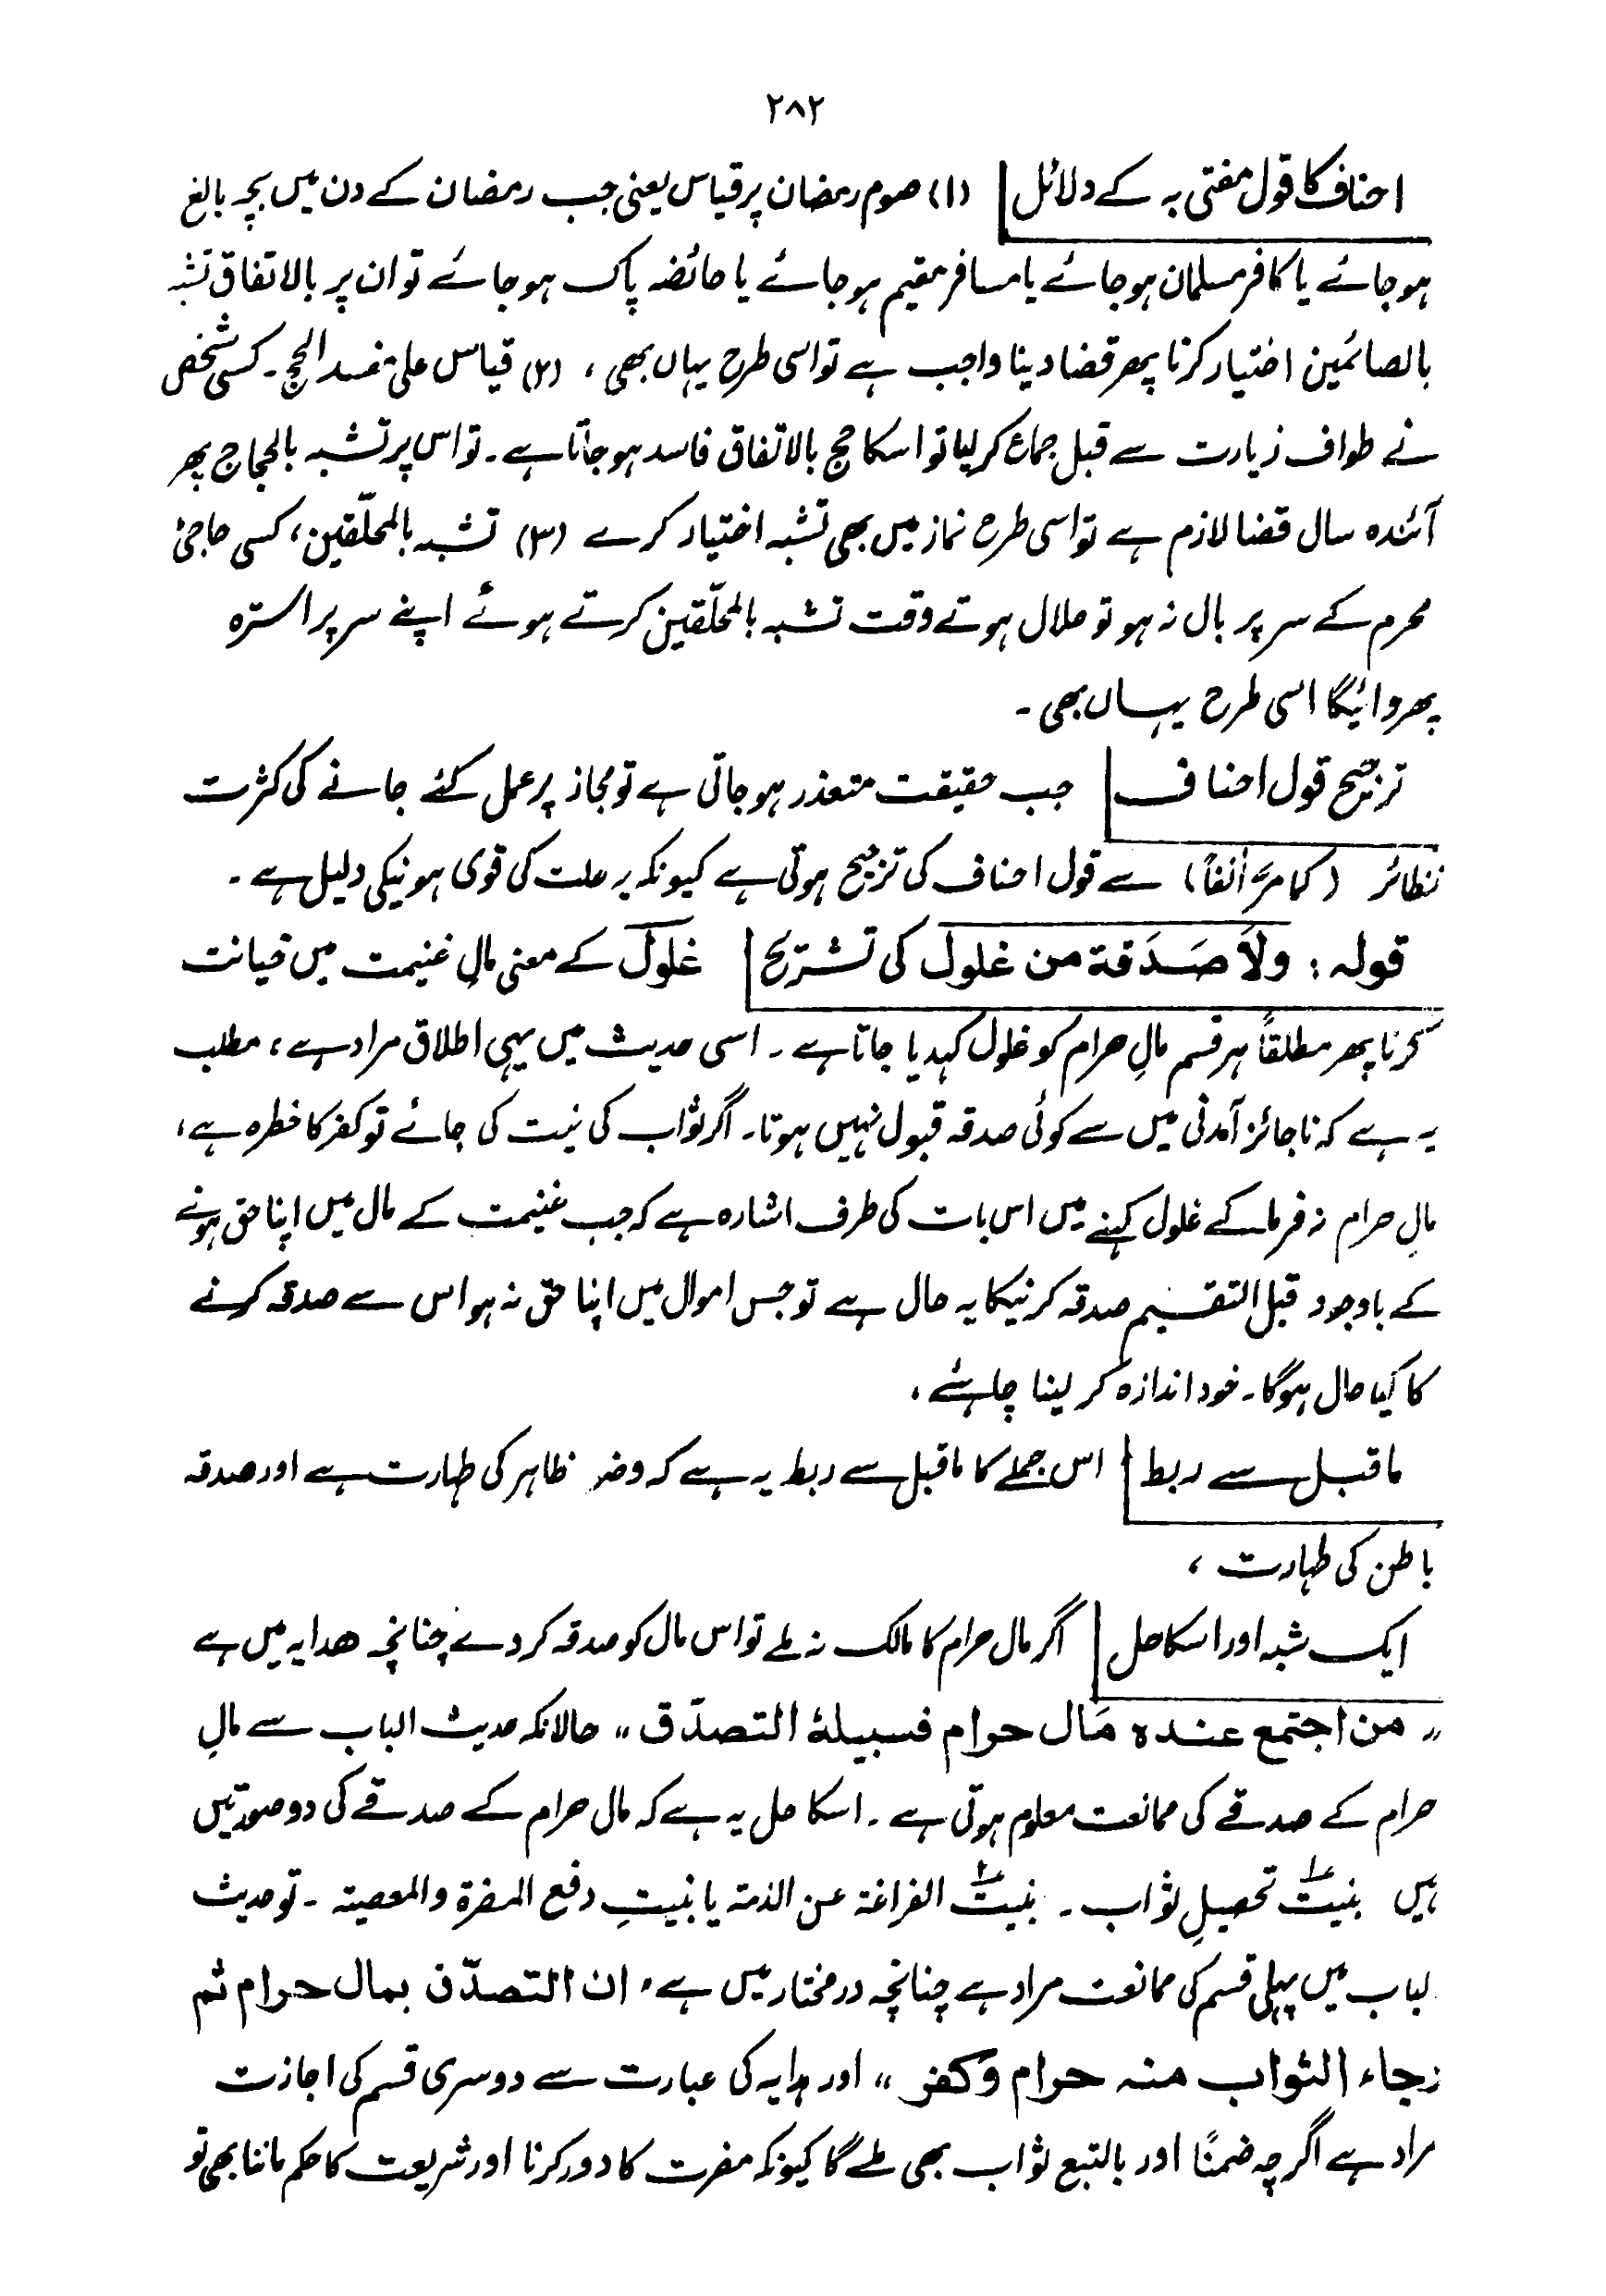 ۲۸۲
احناف کا قول مفتی بہ کے دلائل (۱) صوم رمضان پر قیاس یعنی جب رمضان کے دن میں بچہ بالغ
ہو جائے یا کافر مسلمان ہو جائے یا مسافر مقیم ہو جائے یا حائضہ پاک ہو جائے تو ان پر بالاتفاق تشبہ
بالصائمین اختیار کرنا پھر قضا دینا واجب ہے تو اسی طرح یہاں بھی ، (۲) قیاس علی مفسد الحج ۔ کسی شخص
نے طواف زیارت سے قبل جماع کر لیا تو اسکا حج بالاتفاق فاسد ہو جاتا ہے ۔ تو اس پر تشبہ بالحجاج پھر
آئندہ سال قضا لازم ہے تو اسی طرح نماز میں بھی تشبہ اختیار کرے (۳) تشبہ بالمحلّقین ، کسی حاجی
محرم کے سر پر بال نہ ہو تو حلال ہوتے وقت تشبہ بالمحلّقین کرتے ہوئے اپنے سر پر استرہ
پھروائیگا اسی طرح یہاں بھی ۔
ترجیح قول احناف جب حقیقت متعذر ہو جاتی ہے تو مجاز پر عمل کئے جانے کی کثرت
نظائر ( کما مرّ اٰنفاً ) سے قول احناف کی ترجیح ہوتی ہے کیونکہ یہ علت کی قوی ہونیکی دلیل ہے ۔
قولہ : ولَا صَدَقة من غلول کی تشریح غلول کے معنی مالِ غنیمت میں خیانت
کرنا پھر مطلقاً ہر قسم مالِ حرام کو غلول کہدیا جاتا ہے ۔ اسی حدیث میں یہی اطلاق مراد ہے ، مطلب
یہ ہے کہ ناجائز آمدنی میں سے کوئی صدقہ قبول نہیں ہوتا ۔ اگر ثواب کی نیت کی جائے تو کفر کا خطرہ ہے ،
مالِ حرام نہ فرما کے غلول کہنے میں اس بات کی طرف اشارہ ہے کہ جب غنیمت کے مال میں اپنا حق ہونے
کے باوجود قبل التقسیم صدقہ کرنیکا یہ حال ہے تو جس اموال میں اپنا حق نہ ہو اس سے صدقہ کرنے
کا کیا حال ہوگا ۔ خود اندازہ کر لینا چاہئے ،
ماقبل سے ربط اس جملے کا ماقبل سے ربط یہ ہے کہ وضو ظاہر کی طہارت ہے اور صدقہ
باطن کی طہارت ،
ایک شبہ اور اسکا حل اگر مال حرام کا مالک نہ ملے تو اس مال کو صدقہ کر دے چنانچہ ھدایہ میں ہے
" من اجتمع عندہ مَال حرام فسبیلهٗ التصدّق " حالانکہ حدیث الباب سے مالِ
حرام کے صدقے کی ممانعت معلوم ہوتی ہے ۔ اسکا حل یہ ہے کہ مال حرام کے صدقے کی دو صورتیں
ہیں ۱ بنیتِ تحصیلِ ثواب ۔ ۲ بنیتِ الفراغة عن الذمة یا بنیتِ دفع المضرة والمعصیة ۔ تو حدیث
لباب میں پہلی قسم کی ممانعت مراد ہے چنانچہ درمختار میں ہے " ان التصدّق بمال حرام ثم
رجاء الثواب منہ حرام وَکفر " اور ہدایہ کی عبارت سے دوسری قسم کی اجازت
مراد ہے اگرچہ ضمنًا اور بالتبع ثواب بھی ملے گا کیونکہ مضرت کا دور کرنا اور شریعت کا حکم ماننا بھی تو